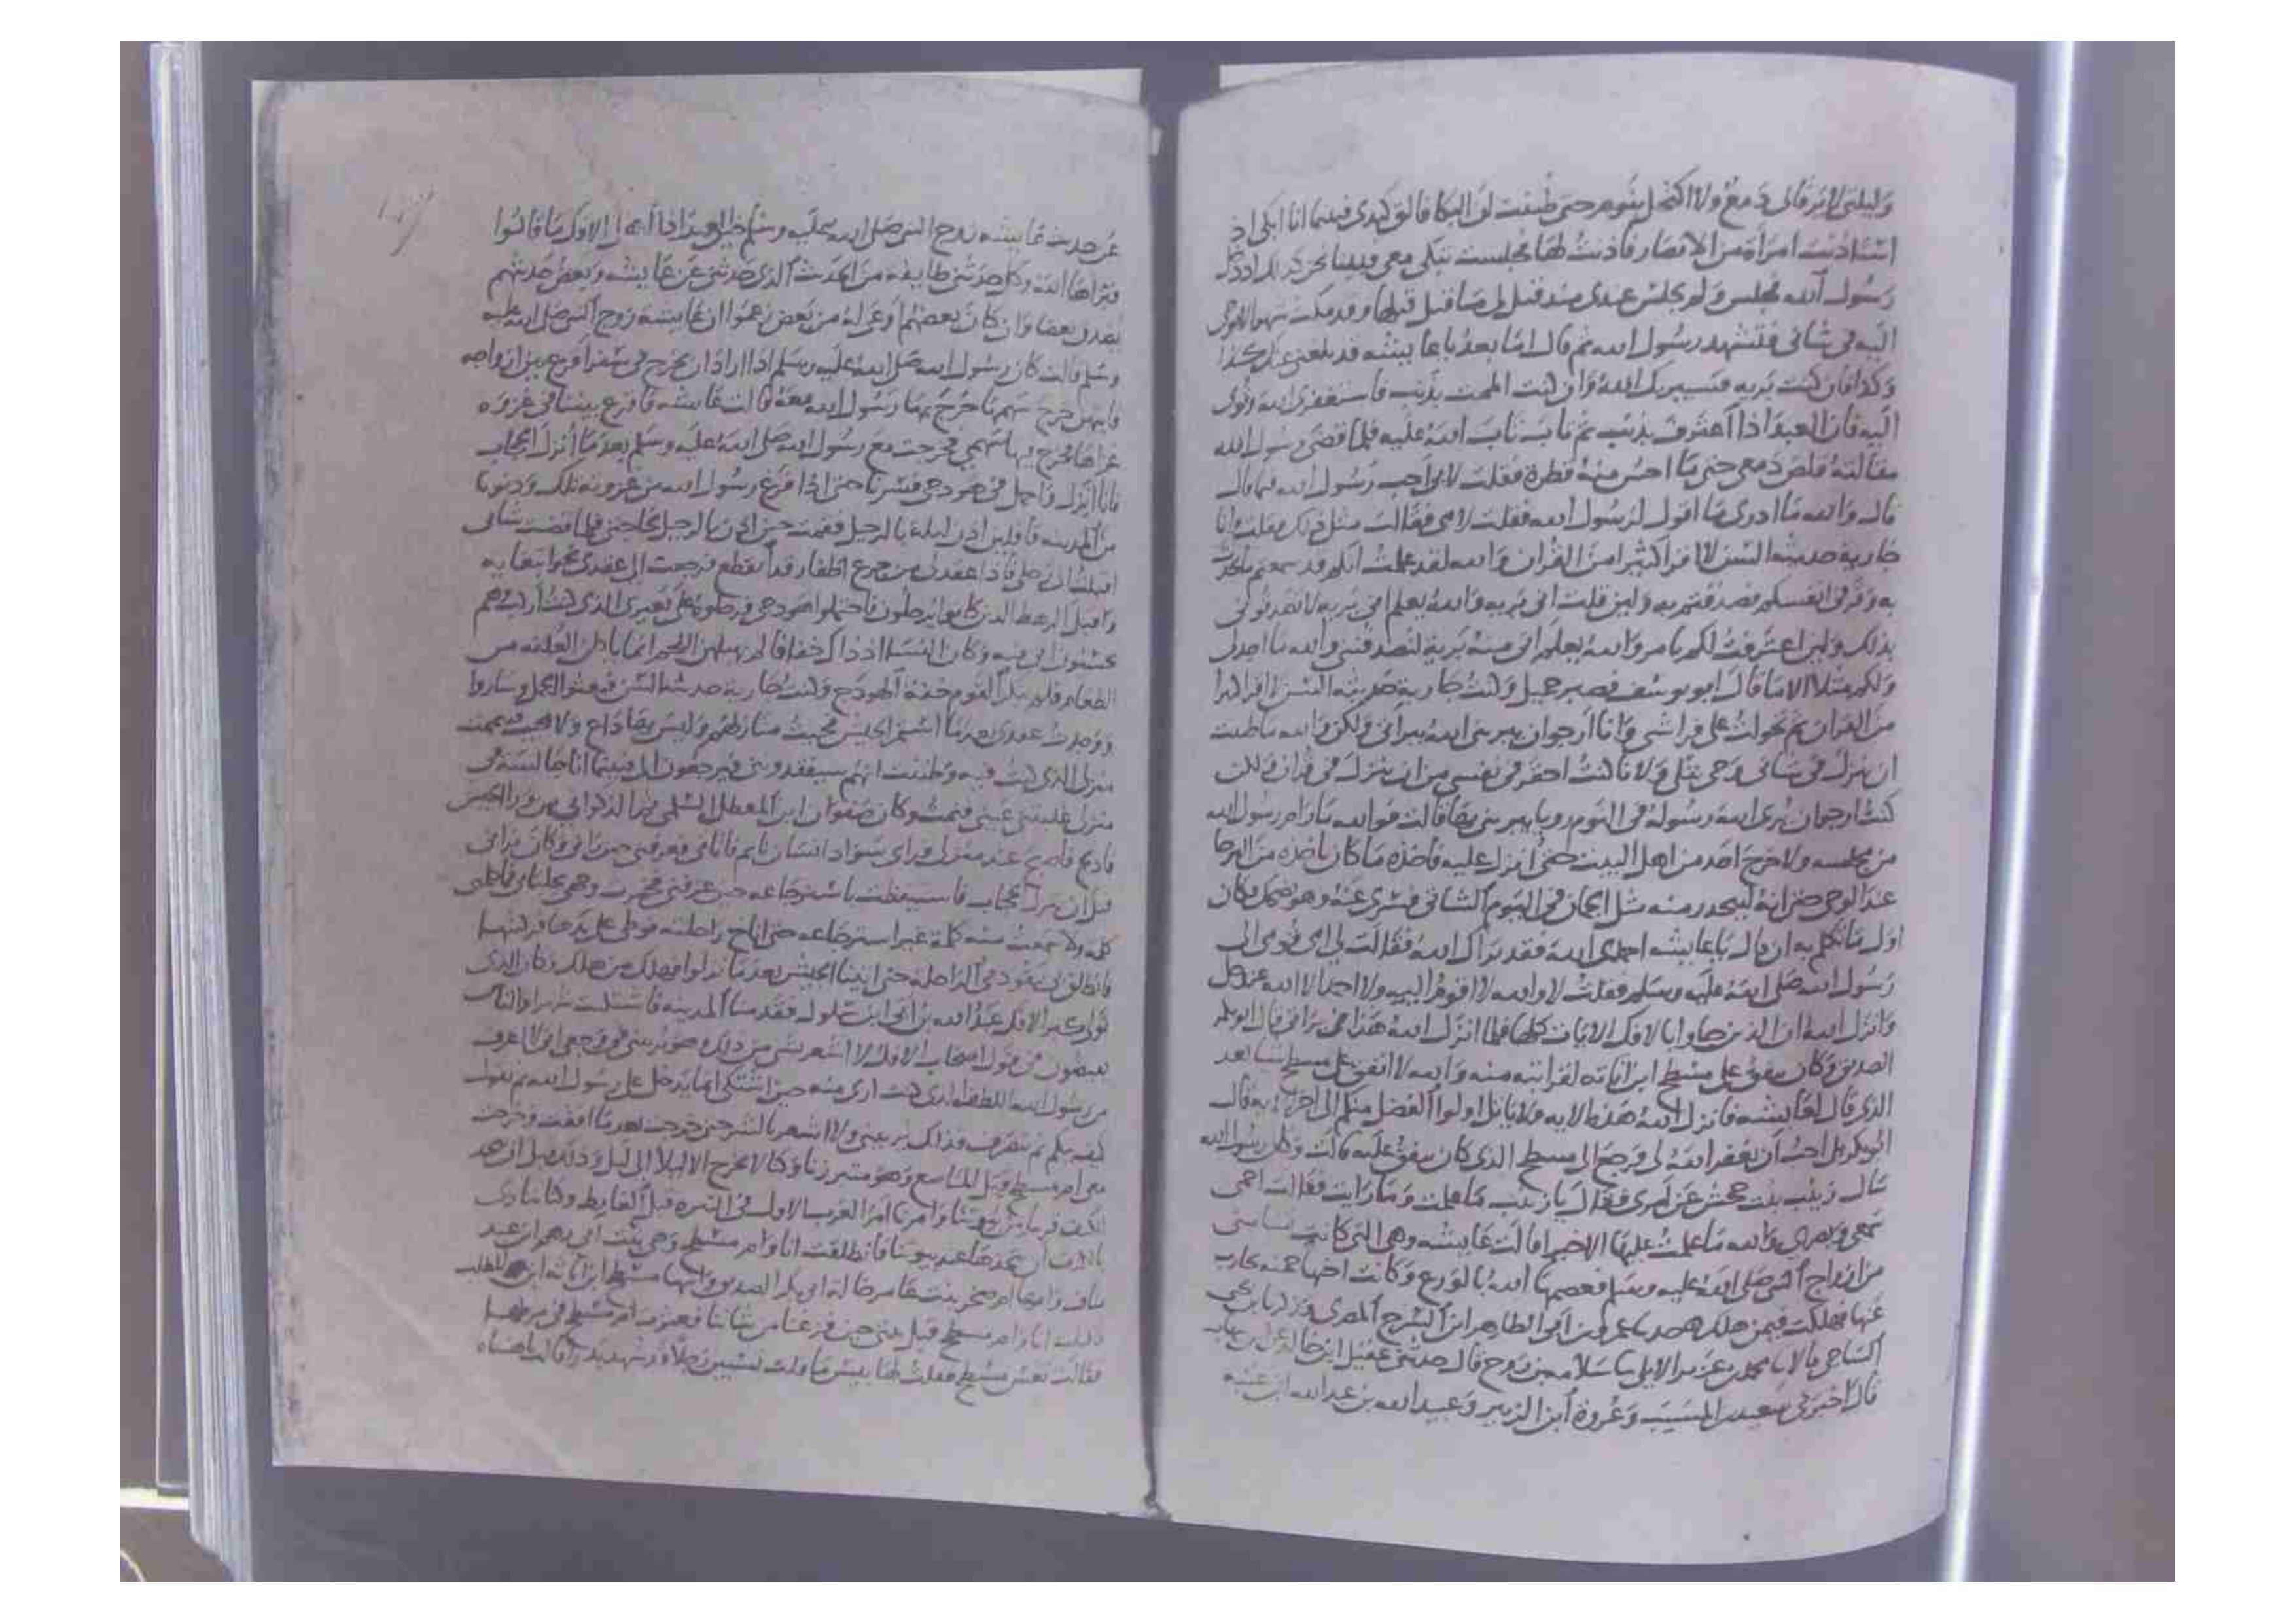 وليلتي لا يرقا لي دمع ولا اكتحل بنوم حتى ظننت ان البكا فالق كبدي فبينما انا ابكي اذ
استاذنت امراة من الانصار فاذنت لها فجلست تبكي معي فبينا نحن كذلك اذ دخل
رسول الله فجلس ولم يجلس عندي منذ قيل لي ما قيل قبلها وقد مكث شهرا لا يوحى
اليه في شاني فتشهد رسول الله ثم قال اما بعد يا عايشه قد بلغني عنك كذا
وكذا فان كنت بريه فسيبريك الله وان كنت الممت بذنب فاستغفري الله وتوبي
اليه فان العبد اذا اعترف بذنب ثم تاب تاب الله عليه فلما قضى رسول الله
مقالته قلص دمعي حتى ما احس منه قطرة فقلت لابي اجب رسول الله فيما قال
قال والله ما ادري ما اقول لرسول الله فقلت لامي فقالت مثل ذلك فقلت وانا
جارية حديثه السن لا اقرا كثيرا من القران والله لقد علمت انكم قد سمعتم
به وقر في انفسكم فصدقتم به ولين قلت اني بريه والله يعلم اني بريه لا تصدقوني
بذلك ولين اعترفت لكم بامر والله يعلم اني منه برية لتصدقنني والله ما اجد لي
ولكم مثلا الا ما قال ابو يوسف فصبر جميل وكنت جارية حديثه السن لا اقرا كثيرا
من القران ثم تحولت على فراشي وانا ارجوا ان يبريني الله ببراتي ولكن والله ما ظننت
ان ينزل في شاني وحي يتلى ولانا كنت احقر في نفسي من ان ينزل في قران ولكن
كنت ارجوا ان يري الله رسوله في النوم رويا يبريني بها قالت فوالله ما رام رسول الله
من مجلسه ولا خرج احد من اهل البيت حتى انزل عليه فاخذه ما كان ياخذه من البرحا
عند الوحي حتى انه ليتحدر منه مثل الجمان في اليوم الشاتي فسري عنه وهو يضحك فكان
اول ما تكلم به ان قال يا عايشه احمدي الله فقد براك الله فقالت لي امي قومي الى
رسول الله صلى الله عليه وسلم فقلت لا والله لا اقوم اليه ولا احمد الا الله عز وجل
وانزل الله ان الذين جاوا بالافك الايات كلها فلما انزل الله هذا في براتي قال ابو بكر
الصديق وكان ينفق على مسطح ابن اثاثه لقرابته منه والله لا انفق على مسطح شيا بعد
الذي قال لعايشه فانزل الله هذه الايه ولا ياتل اولوا الفضل منكم الى اخر الايه قال
ابو بكر بلى احب ان يغفر الله لي فرجع الى مسطح الذي كان ينفق عليه قالت وكان رسول الله
سال زينب بنت جحش عن امري فقال يا زينب ما علمت وما رايت فقالت احمي
سمعي وبصري والله ما علمت عليها الا خيرا قالت عايشه وهي التي كانت تساميني
من ازواج النبي صلى الله عليه وسلم فعصمها الله بالورع وكانت اختها حمنه تحارب
عنها فهلكت فيمن هلك حدثنا عمرو بن ابو الطاهر ابن السرح المصري وزكريا بن يحيى
الساجي بالا ثنا محمد بن عزيز الايلي ثنا سلامه بن روح قال حدثني عقيل ابن خالد عن ابن شهاب
قال اخبرني سعيد بن المسيب وعروة ابن الزبير وعبيد الله بن عبد الله ابن عتبه
عن حديث عايشه زوج النبي صلى الله عليه وسلم حين قال اهل الافك ما قالوا
فبراها الله وكل حدثني طايفه من الحديث الذي حدثني عن عايشه وبعض حديثهم
يصدق بعضا وان كان بعضهم اوعى له من بعض زعموا ان عايشه زوج النبي صلى الله عليه
وسلم قالت كان رسول الله صلى الله عليه وسلم اذا اراد ان يخرج في سفر اقرع بين ازواجه
فايتهن خرج سهمها خرج بها رسول الله معه قالت عايشه فاقرع بيننا في غزوه
غزاها فخرج فيها سهمي فخرجت مع رسول الله صلى الله عليه وسلم بعد ما انزل الحجاب
فانا انزل واحمل في هودجي فسرنا حتى اذا فرغ رسول الله من غزوته تلك ودنونا
من المدينه قافلين اذن ليلة بالرحيل فقمت حين اذن بالرحيل لحاجتي فلما قضيت شاني
اقبلت الى رحلي فاذا عقد لي من جزع اظفار قد انقطع فرجعت الى عقدي
واقبل الرهط الذين كانوا يرحلون فاحتملوا هودجي فرحلوه على بعيري الذي كنت اركب وهم
يحسبون اني فيه وكان النسا اذ ذاك خفافا لم يهبلهن اللحم انما ياكلن العلقه من
الطعام فلم القوم خفة الهودج وكنت جارية حديثه السن فبعثوا الجمل وساروا
ووجدت عقدي بعد ما استمر الجيش فجيت منازلهم وليس بها داع ولا مجيب فتيممت
منزلي الذي كنت فيه وظننت انهم سيفقدوني فيرجعون الي فبينما انا جالسة في
منزلي غلبتني عيني فنمت وكان صفوان ابن المعطل السلمي ثم الذكواني من ورا الجيش
فادلج فاصبح عند منزلي فراى سواد انسان نايم فاتاني فعرفني حين راني وكان يراني
قبل ان ينزل الحجاب فاستيقظت باسترجاعه حين عرفني فخمرت وجهي بجلبابي
كلمه ولا سمعت منه كلمة غير استرجاعه حتى اناخ راحلته فوطي على يدها فركبتها
فانطلق يقود في الراحله حتى اتينا الجيش بعد ما نزلوا فهلك من هلك وكان الذي
تولى كبر الافك عبد الله بن ابي ابن سلول فقدمنا المدينه فاشتكيت شهرا والناس
يفيضون في قول اصحاب الافك لا اشعر بشي من ذلك وهو يريبني في وجعي اني لا اعرف
من رسول الله اللطف الذي كنت ارى منه حين اشتكي انما يدخل علي رسول الله ثم يقول
كيف تيكم ثم ينصرف فذاك يريبني ولا اشعر بالشر حتى خرجت بعد ما افقت وخرجت
معي ام مسطح قبل المناصع وهو متبرزنا وكنا لا نخرج الا ليلا الى ليل وذلك قبل ان نتخذ
الكنف قريبا من بيوتنا وامرنا امر العرب الاول في التنزه قبل الغايط وكنا نتاذى
بالكنف ان نتخذها عند بيوتنا فانطلقت انا وام مسطح وهي بنت ابي رهم ابن عبد
مناف وامها ام صخر بنت عامر خالة ابي بكر الصديق وابنها مسطح ابن اثاثه ابن المطلب
فاقبلت انا وام مسطح قبل بيتي حين فرغنا من شاننا فعثرت ام مسطح في مرطها
فقالت تعس مسطح فقلت لها بيس ما قلت تسبين رجلا قد شهد بدرا قالت يا هنتاه